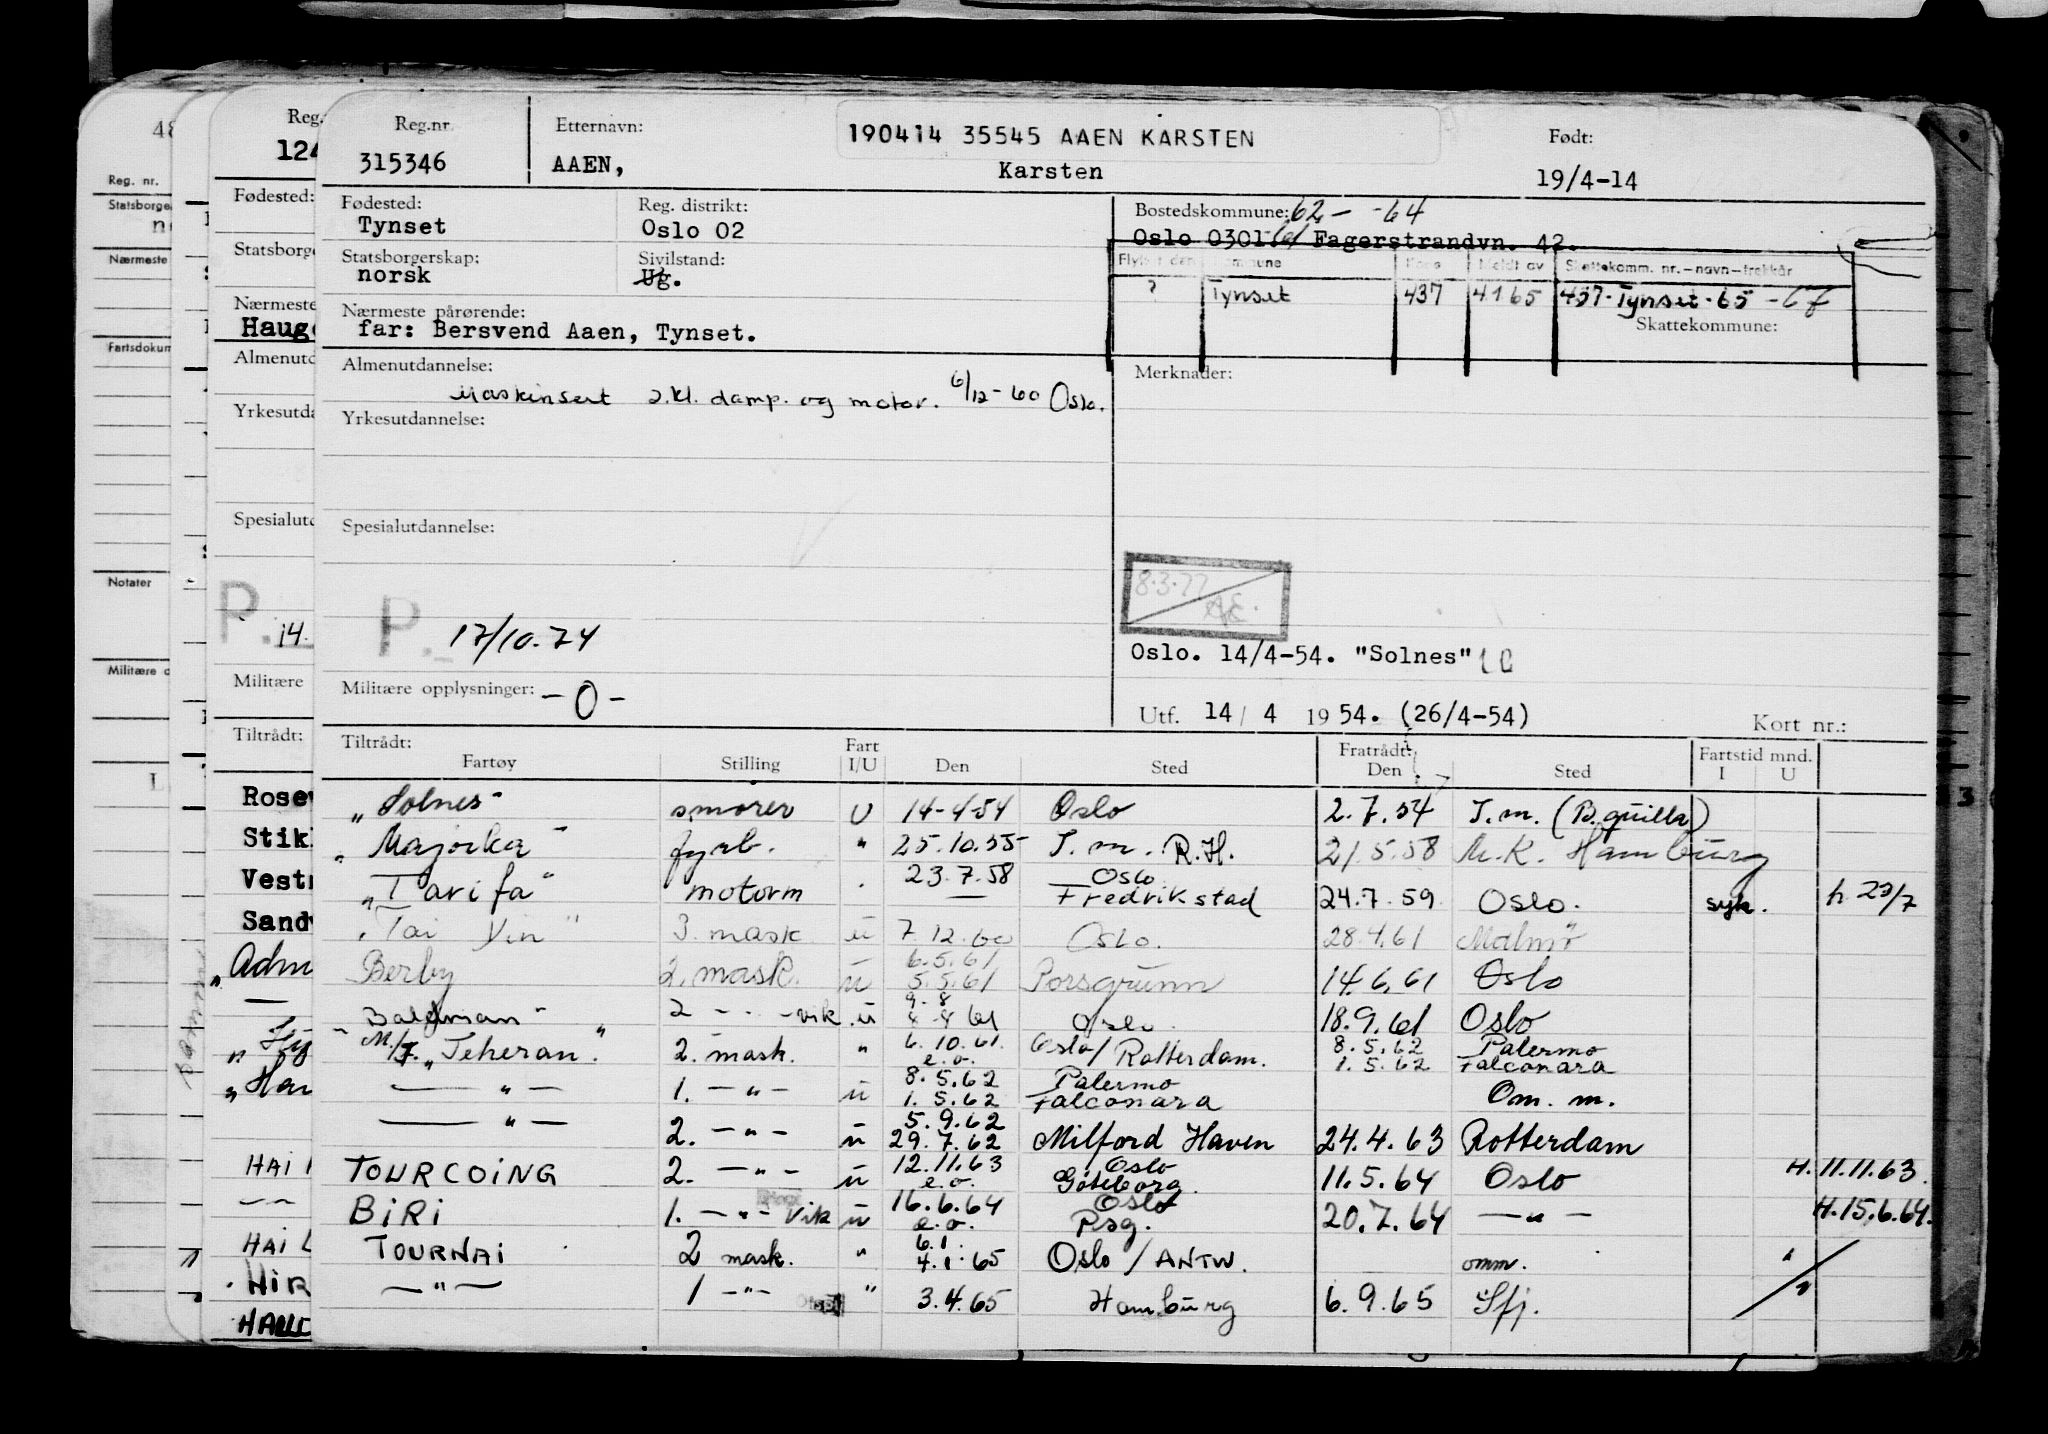 Reg.nr. Etternavn: 190414 35545 AAEN KARSTEN Født:
315346 AAEN, Karsten 19/4-14
Fødested: Reg. distrikt: Bostedskommune: 62 - -64
Tynset Oslo 02 Oslo 0301 Fagerstrandvn. 42.
Statsborgerskap: Sivilstand:
norsk Ug.
Skattekomm. nr.-navn-trekkår
? Tynset 437 4 1 65 437-Tynset-65 -67
Nærmeste pårørende: Skattekommune:
far: Bersvend Aaen, Tynset.
Almenutdannelse: Merknader:
Maskinsert 2.kl. damp. og motor. 6/12-60 Oslo.
Yrkesutdannelse:
Spesialutdannelse:
8.3.77
P. 17/10.74
Oslo. 14/4-54. "Solnes"
Militære opplysninger: -0-
Utf. 14/4 1954. (26/4-54) Kort nr.:
Tiltrådt: Fart Fratrådt: Fartstid mnd.
Fartøy Stilling I/U Den Sted Den Sted I U
"Solnes" smører U 14-4-54 Oslo 2.7.54 T.m. (B.quilla)
"Majorka" fyrb. " 25.10.55 T.m. R.H. 21.5.58 M.K. Hamburg
"Tarifa" motorm 23.7.58 — Oslo Fredrikstad 24.7.59 Oslo. syk. h. 23/7
"Tai Yin" 3. mask ü 7.12.60 Oslo. 28.4.61 Malmö
Berby 2. mask. ü 6.5.61 5.5.61 Porsgrunn 14.6.61 Oslo
"Balaman" 2 - " - vik. ü 9-8 4-8 61 Oslo. 18.9.61 Oslo
M/T. "Teheran." 2. mask. " 6.10.61 e.o. Oslo/Rotterdam. 8.5.62 1.5.62 Palermo Falconara
— " — 1. - " - ü 8.5.62 1.5.62 Palermo Falconara Om. m.
— " — 2. - " - ü 5.9.62 29.7.62 Milford Haven 24.4.63 Rotterdam
TOURCOING 2. - " - ü 12.11.63 e.o. Oslo Göteborg. 11.5.64 Oslo H.11.11.63.
BIRI 1. - " - vik ü 16.6.64 e.o. Oslo Psg. 20.7.64 — " — H.15.6.64.
TOURNAI 2 mask. " 6.1. 4.1.65 Oslo / ANTW. omm. "
— " — 1 - " - " 3.4.65 Hamburg 6.9.65 Sfj. "
Reg.
124
Fødested:
Statsborge
Nærmeste
Haug
Almenutd
Yrkesutda
Spesialutd
P. 14.
Militære
Tiltrådt:
Rosev
Stik
Vest
Sand
"Adm
"Har
HAI
HAI L
HIR
HAUC
48
Reg. nr.
Statsborge
Nærmeste
Fartsdokum
Notater
Militære o
L
3